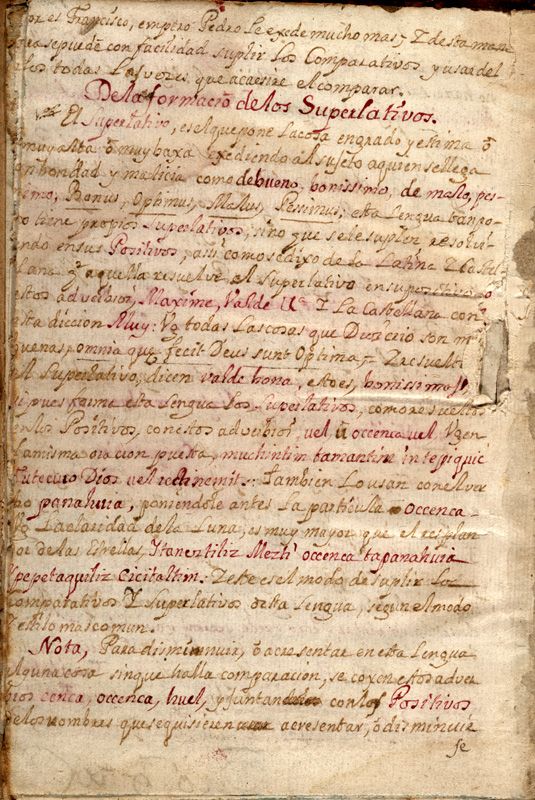 por es Francisco, empero Pedro le exede mucho mas, Y desta man
era se puede con facilidad suplir los Comparativos y usar del
los todas las vezes que acaesire el comparar.
De la formacio de los Superlativos.
El Superlativo, es el que pone la cosa en grado y estima ō
muy alta ō muy baxa exediendo al sujeto a quien se llega
en bondad y malicia como de bueno, bonissimo, de malo, pes-
simo, Bonus, Optimus, Malus, Pessimus; esta lengua tanpo-
co tiene propios Superlativos, sino que se le suplen resolvi-
endo en sus Positivos, asi como se dixo de la Latina Y Castel-
lana q aquella resuelve el Superlativo en su positivo
estos adverbios, Maxime, Valde Y La Castellana con
esta diccion Muy: Vg todas las cosas que Dios crio son m
buenas, omnia que fecit Deus sunt Optima, Y resuelt
el Superlativo, dicen valde bona, esto es, bonissima
pues exime esta lengua los Superlativos, como resueltos
en los Positivos, con estos adverbios vel, occenca vel Vg en
la misma oracion puesta, muchintin
tutecuio Dios vel Tambien lo usan con el ver
bo panahuia, poniendole antes la particula occenca-
Vg La claridad de la Luna, es muy mayor que el resplan
dor de las Estrellas, Itanextiliz Meztli occenca tapanahuia
ypepetaquiliz Cicitaltim: Y este es el modo de suplir los
Comparativos Y Superlativos desta lengua, segun el modo
Y estilo mas comun.
Nota, Para disminuir, ō acresentar en esta Lengua
alguna cosa sin que halla comparacion, se coxen estos adver
bios cenca, occenca, huel, y juntandolos con los Positivos
de los nombres que se quisieren acresentar, ō disminuir
se